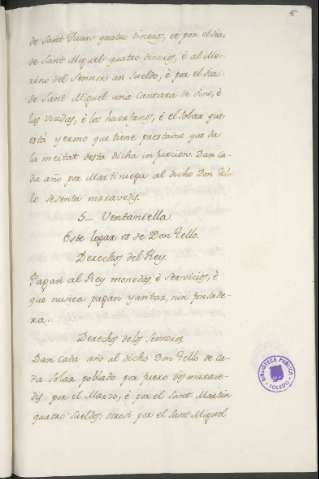 de Sant Juan quatro dineros, et por el dia
de Sant Miguel quatro dineros, è al Me-
rino del Sennor un Sueldo, è por el dia
de Sant Miguel una Cantara de vino, è
las viudas, è los huerfanos, è el Solar que
està yermo que tiene prestamo que da
la meitat desta dicha infurcion. Dan ca-
da año por Martiniega al dicho Don Te-
llo sesenta maravedis.
5.. Ventaniella.
Este logar es de Don Tello.
Derechos del Rey.
Pagan al Rey monedas è Servicios, è
que nunca pagan yantar, nin fonsade-
ra..
Derechos de los Sennores
Dan cada año al dicho Don Tello de ca-
da Solar poblado por fuero dos marave-
dis por el Marzo, è por el Sant Martin
quatro Sueldos, por el Sant Miguel
BIBLIOTECA PUBLICA
TOLEDO